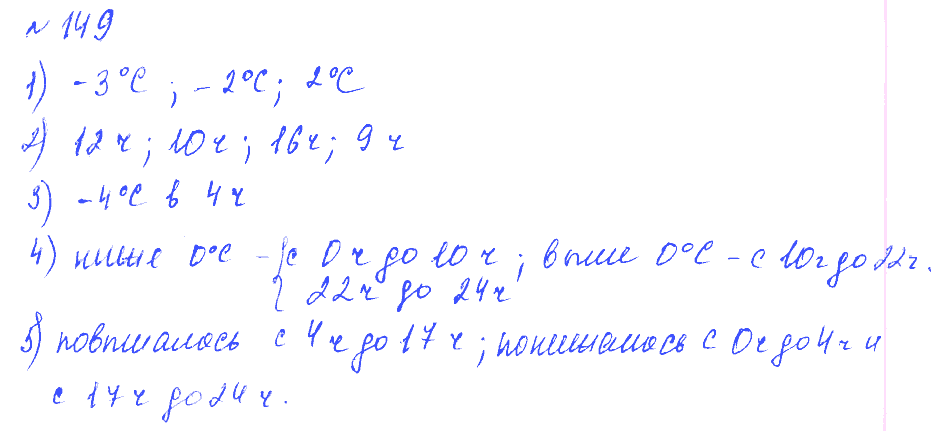 № 149
1) -3°C ; -2°C; 2°C
2) 12 ч; 10 ч; 16 ч; 9 ч
3) -4°C в 4 ч
4) ниже 0°C - { с 0 ч до 10 ч ; выше 0°C - с 10 ч до 22 ч.
22 ч до 24 ч
5) повышалось с 4 ч до 17 ч ; понижалось с 0 ч до 4 ч и
с 17 ч до 24 ч.